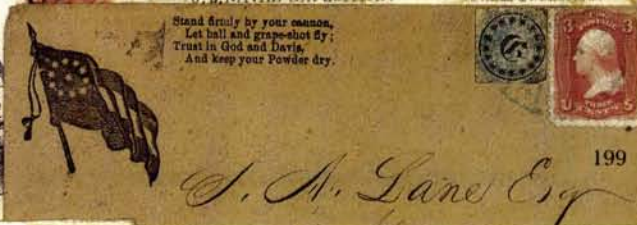 Stand firmly by your cannon,
Let ball and grape-shot fly;
Trust in God and Davis,
And keep your Powder dry.
3 3
U S
199
S. A. Lane Esq